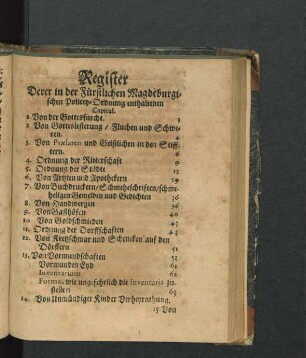 Register
Derer in der Fürstlichen Magdeburgi-
schen Policey-Ordnung enthaltenen
Capitul.
1. Von der Gottesfurcht. 3
2 Von Gotteslesterung / Fluchen und Schwe-
ren. 4
3. Von Prælaten und Geistlichen in den Stiff-
tern. 6
4. Ordnung der Ritterschafft 9
5. Ordnung der Städte 15
6. Von Artzten und Apotheckern 24
7. Von Buchdruckern / Schmeheschrifften / schme-
heligen Gemelden und Gedichten 36
8. Von Handwercken 36
9. Von Gasthöfen
10. Von Goldschmieden
11. Ordnung der Dorffschafften 45
12. Von Kretzschmar und Schencken auf den
Dörffern 51
13. Von Vormundschafften 52
Vormunden Eyd 61
Inventarium 62
Forma, wie ungefehrlich die Inventaria zu
stellen 63
14. Von Unmündiger Kinder Verheyrathung.
15. Von